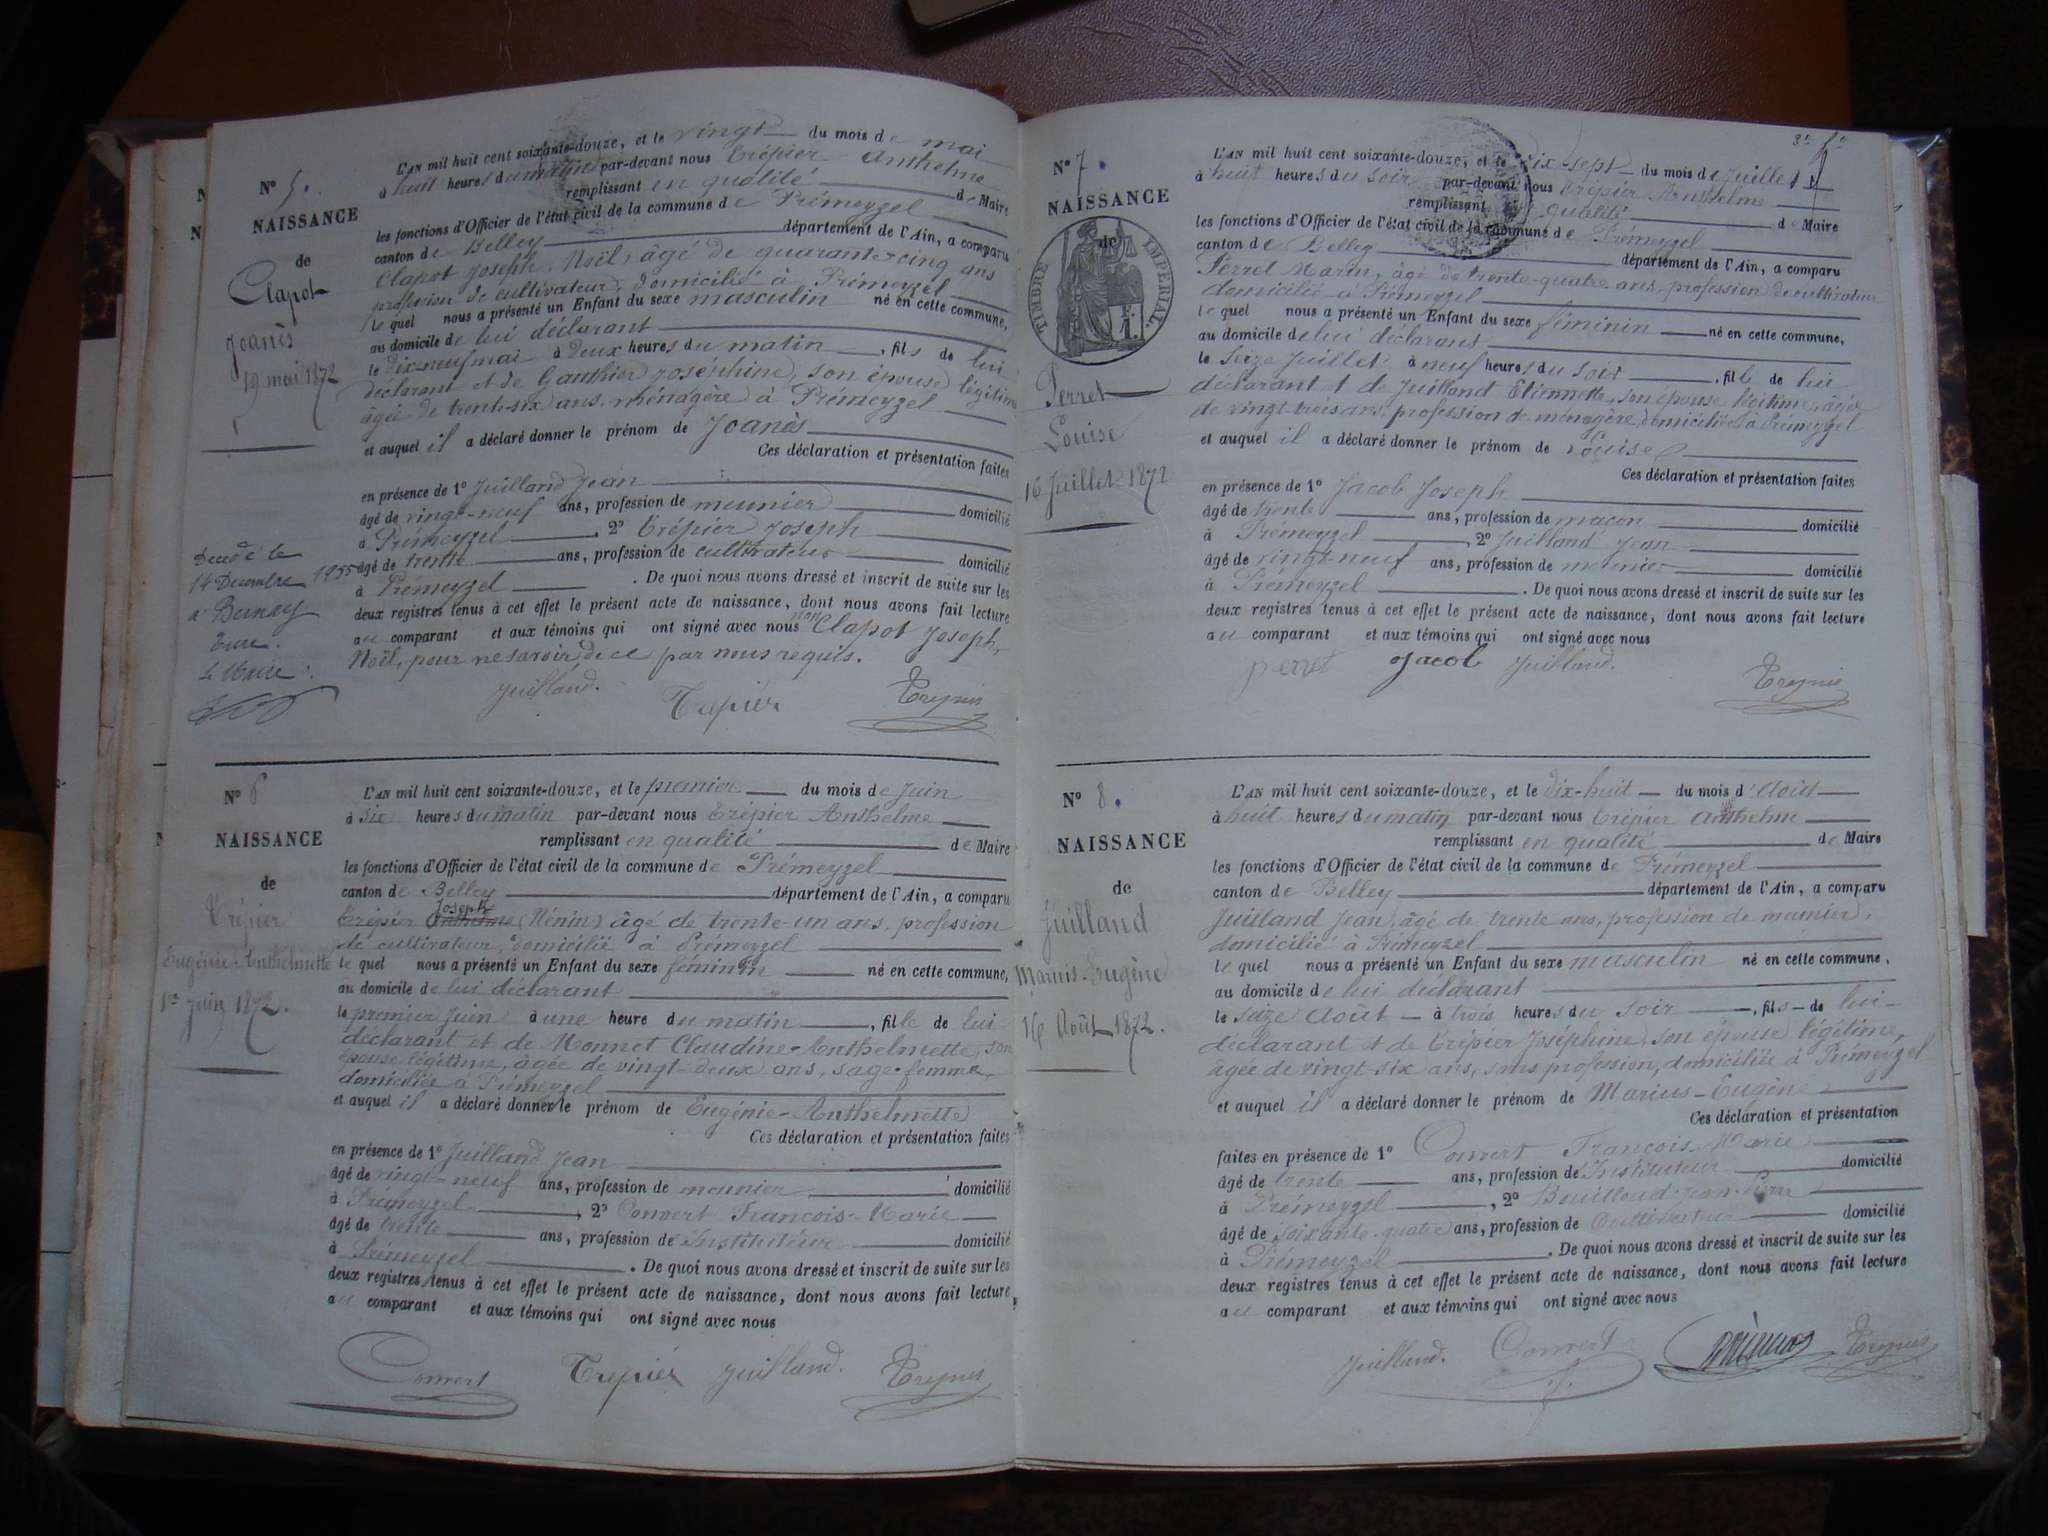 N° 5.
NAISSANCE
de
Clapot
Joanès
19 mai 1872
Decedé le
14 Decembre 1955
a Bernay
Eure.
Le Maire :
L'AN mil huit cent soixante-douze, et le vingt du mois de mai
à huit heures du matin par-devant nous Trépier Anthelme
remplissant en qualité de Maire
les fonctions d'Officier de l'état civil de la commune de Prémeyzel
canton de Belley département de l'Ain, a comparu
Clapot Joseph-Noël, âgé de quarante-cinq ans
profession de cultivateur, domicilié à Prémeyzel
le quel nous a présenté un Enfant du sexe masculin né en cette commune,
au domicile de lui déclarant
le dix-neuf mai à deux heures du matin, fils de lui
déclarant et de Gauthier Joséphine, son épouse légitime
âgée de trente-six ans, ménagère à Prémeyzel
et auquel il a déclaré donner le prénom de Joanès
Ces déclaration et présentation faites
en présence de 1° Juilland Jean
âgé de vingt-neuf ans, profession de meunier domicilié
à Prémeyzel, 2° Trépier Joseph
âgé de trente ans, profession de cultivateur domicilié
à Prémeyzel. De quoi nous avons dressé et inscrit de suite sur les
deux registres tenus à cet effet le présent acte de naissance, dont nous avons fait lecture
au comparant et aux témoins qui ont signé avec nous non Clapot Joseph,
Noël, pour ne savoir, de ce par nous requis.
Juilland. Trepier Trepier
N° 6
NAISSANCE
de
Trépier
Eugénie-Anthelmette
1er Juin 1872.
L'AN mil huit cent soixante-douze, et le premier du mois de Juin
à six heures du matin par-devant nous Trépier Anthelme
remplissant en qualité de Maire
les fonctions d'Officier de l'état civil de la commune de Prémeyzel
canton de Belley département de l'Ain, a comparu
Joseph
Trépier Anthelme (Nénin) âgé de trente-un ans, profession
de cultivateur, domicilié à Prémeyzel
le quel nous a présenté un Enfant du sexe féminin né en cette commune,
au domicile de lui déclarant
le premier Juin à une heure du matin, fille de lui
déclarant et de Monnet Claudine-Anthelmette, son
épouse légitime, âgée de vingt-deux ans, sage-femme,
domiciliée à Prémeyzel
et auquel il a déclaré donner le prénom de Eugénie-Anthelmette
Ces déclaration et présentation faites
en présence de 1° Juilland Jean
âgé de vingt-neuf ans, profession de meunier domicilié
à Prémeyzel, 2° Convert François-Marie
âgé de trente ans, profession de Instituteur domicilié
à Prémeyzel. De quoi nous avons dressé et inscrit de suite sur les
deux registres tenus à cet effet le présent acte de naissance, dont nous avons fait lecture,
au comparant et aux témoins qui ont signé avec nous
Convert Trepier Juilland. Trepier
N° 7.
NAISSANCE
de
TIMBRE IMPERIAL
1 F.
Perret
Louise
16 Juillet 1872
L'AN mil huit cent soixante-douze, et le dix-sept du mois de Juillet
à huit heures du soir par-devant nous Trépier Anthelme
remplissant qualité de Maire
les fonctions d'Officier de l'état civil de la commune de Prémeyzel
canton de Belley département de l'Ain, a comparu
Perret Marin, âgé de trente-quatre ans, profession de cultivateur
domicilié à Prémeyzel
le quel nous a présenté un Enfant du sexe féminin né en cette commune,
au domicile de lui déclarant
le Seize Juillet à neuf heures du soir, fille de lui
déclarant et de Juilland Etiennette, son épouse légitime, âgée
de vingt-trois ans, profession de ménagère, domiciliée à Prémeyzel
et auquel il a déclaré donner le prénom de Louise
Ces déclaration et présentation faites
en présence de 1° Jacob Joseph
âgé de trente ans, profession de maçon domicilié
à Prémeyzel, 2° Juilland Jean
âgé de vingt-neuf ans, profession de meunier domicilié
à Prémeyzel. De quoi nous avons dressé et inscrit de suite sur les
deux registres tenus à cet effet le présent acte de naissance, dont nous avons fait lecture
au comparant et aux témoins qui ont signé avec nous
perret Jacob Juilland. Trepier
N° 8.
NAISSANCE
de
Juilland
Marius-Eugène
16 Août 1872.
L'AN mil huit cent soixante-douze, et le dix-huit du mois d'Août
à huit heures du matin par-devant nous Trépier Anthelme
remplissant en qualité de Maire
les fonctions d'Officier de l'état civil de la commune de Prémeyzel
canton de Belley département de l'Ain, a comparu
Juilland Jean, âgé de trente ans, profession de meunier,
domicilié à Prémeyzel
le quel nous a présenté un Enfant du sexe masculin né en cette commune,
au domicile de lui déclarant
le seize Août à trois heures du soir, fils de lui-
déclarant et de Trépier Joséphine, son épouse légitime,
âgée de vingt-six ans, sans profession, domiciliée à Prémeyzel
et auquel il a déclaré donner le prénom de Marius-Eugène
Ces déclaration et présentation
faites en présence de 1° Convert François-Marie
âgé de trente ans, profession de Instituteur domicilié
à Prémeyzel, 2° Bouilloud Jean-Pierre
âgé de soixante-quatre ans, profession de Cultivateur domicilié
à Prémeyzel. De quoi nous avons dressé et inscrit de suite sur les
deux registres tenus à cet effet le présent acte de naissance, dont nous avons fait lecture
au comparant et aux témoins qui ont signé avec nous
Juilland. Convert Trepier